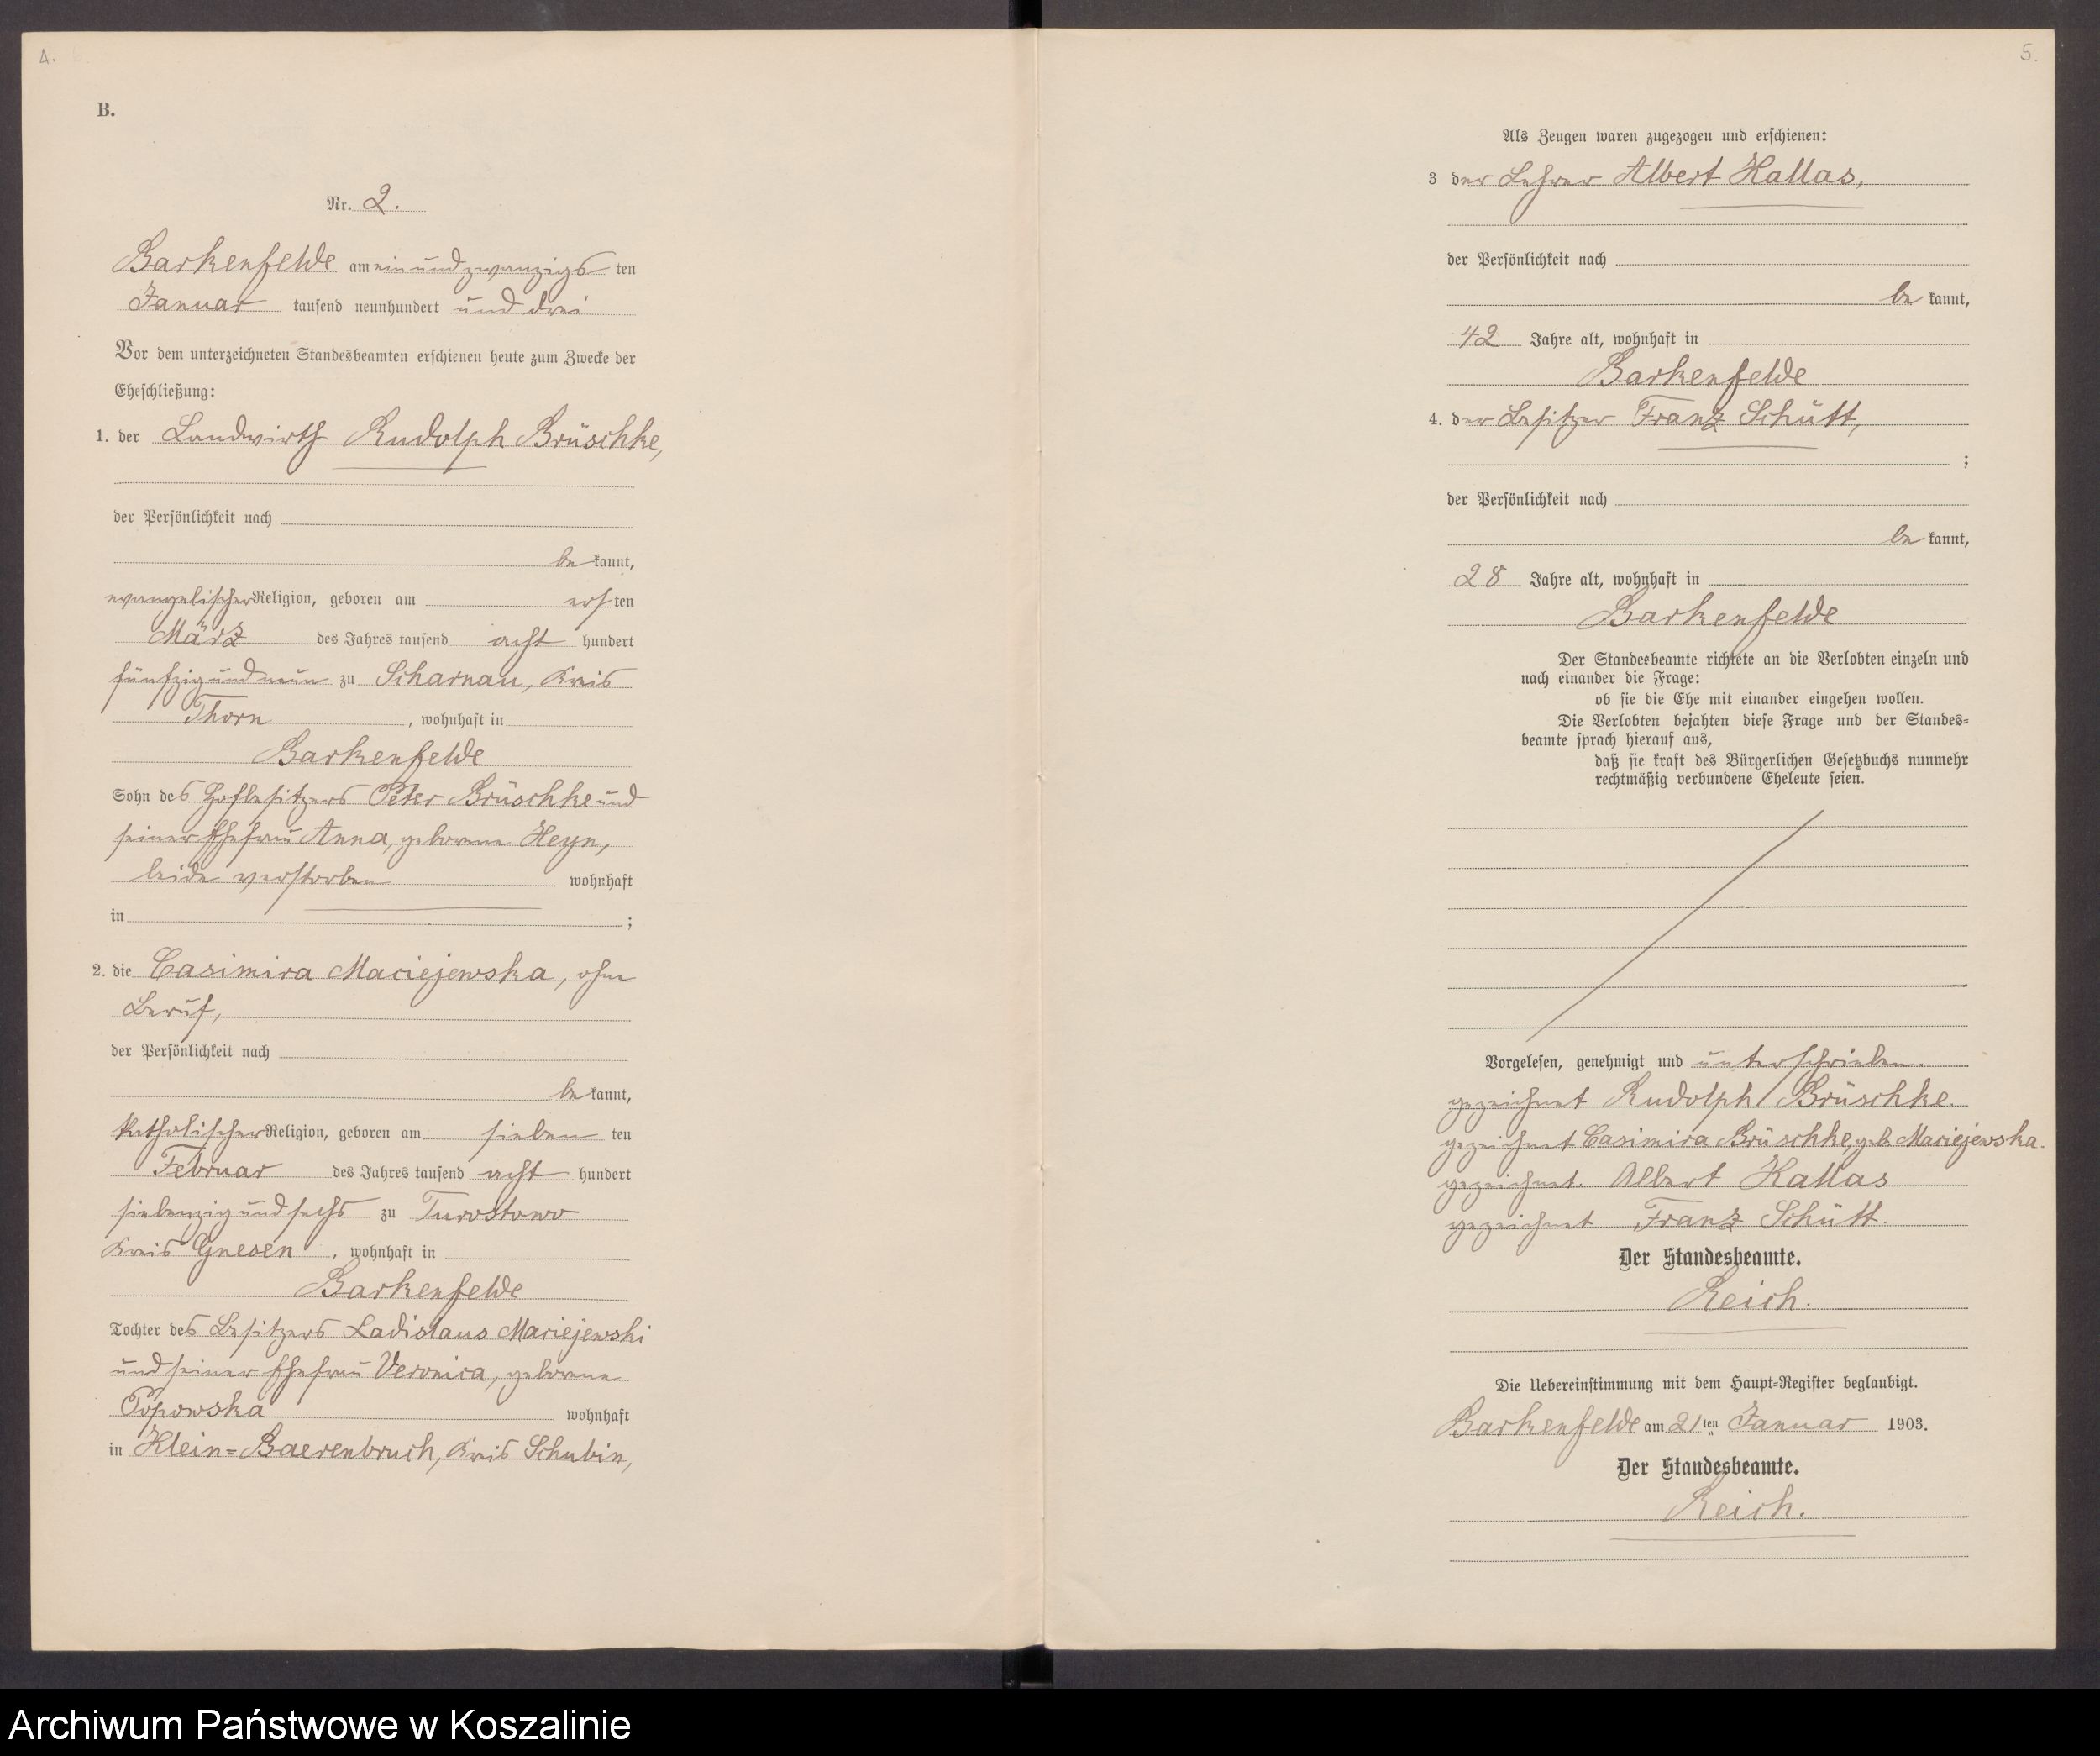 4.
B.
Nr. 2.
Barkenfelde am einundzwanzigsten
Januar tausend neunhundert und drei
Vor dem unterzeichneten Standesbeamten erschienen heute zum Zwecke der
Eheschließung:
1. der Landwirth Rudolph Brüschke,
der Persönlichkeit nach
bekannt,
evangelischer Religion, geboren am ersten
März des Jahres tausend acht hundert
fünfzig und neun zu Scharnau, Kreis
Thorn, wohnhaft in
Barkenfelde
Sohn des Hofbesitzers Peter Brüschke und
seiner Ehefrau Anna, geborene Heyn,
beide verstorben wohnhaft
in ;
2. die Casimira Maciejewska, ohne
Beruf,
der Persönlichkeit nach
bekannt,
katholischer Religion, geboren am sieben ten
Februar des Jahres tausend acht hundert
siebenzig und sechs zu Turostowo
Kreis Gnesen, wohnhaft in
Barkenfelde
Tochter des Besitzers Ladislaus Maciejewski
und seiner Ehefrau Veronica, geborene
Popowska wohnhaft
in Klein=Baerenbruch, Kreis Schubin,
5.
Als Zeugen waren zugezogen und erschienen:
3 der Lehrer Albert Kallas,
der Persönlichkeit nach
bekannt,
42 Jahre alt, wohnhaft in
Barkenfelde
4. der Besitzer Franz Schütt,
;
der Persönlichkeit nach
bekannt,
28 Jahre alt, wohnhaft in
Barkenfelde
Der Standesbeamte richtete an die Verlobten einzeln und
nach einander die Frage:
ob sie die Ehe mit einander eingehen wollen.
Die Verlobten bejahten diese Frage und der Standes=
beamte sprach hierauf aus,
daß sie kraft des Bürgerlichen Gesetzbuchs nunmehr
rechtmäßig verbundene Eheleute seien.
Vorgelesen, genehmigt und unterschrieben.
gezeichnet Rudolph Brüschke.
gezeichnet Casimira Brüschke, geb. Maciejewska.
gezeichnet. Albert Kallas
gezeichnet Franz Schütt.
Der Standesbeamte.
Reich.
Die Uebereinstimmung mit dem Haupt=Register beglaubigt.
Barkenfelde am 21ten Januar 1903.
Der Standesbeamte.
Reich.
Archiwum Państwowe w Koszalinie